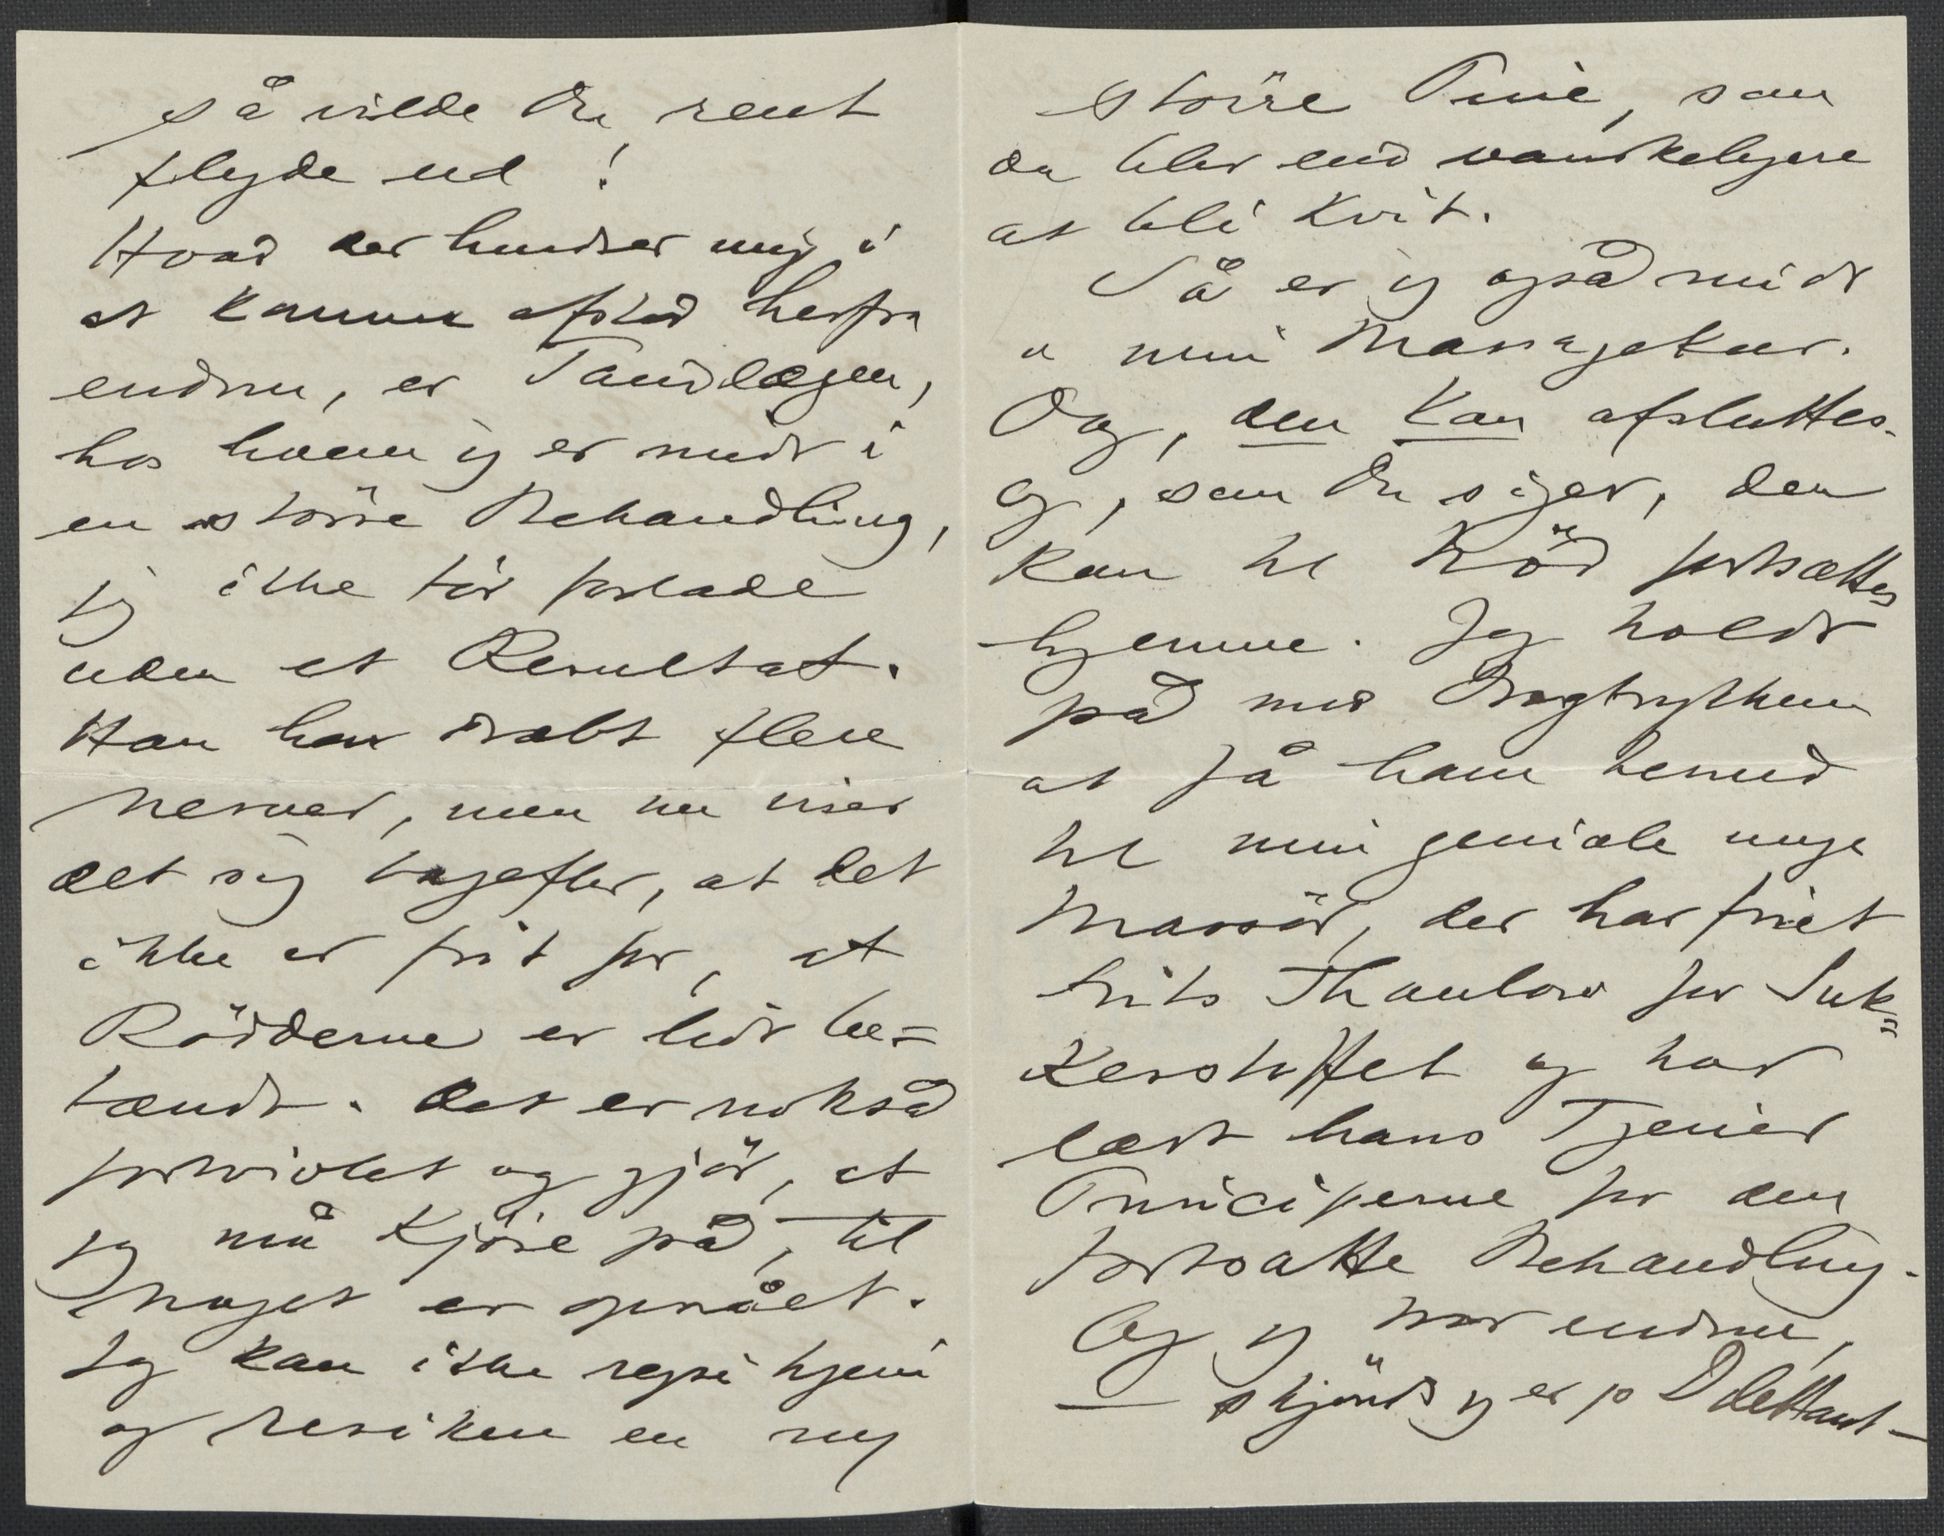 så vilde Du rent
flyde ud!
Hvad der hindrer mig i
at komme afsted herfra
endnu, er Tandlægen,
hos hvem jeg er midt i
en større Behandling,
jeg ikke tør forlade
uden et Resultat.
Han har dræbt flere
Nerver, men nu viser
det sig bagefter, at det
ikke er frit for, at
Rödderne er lidt be=
tændt. Det er nokså
fortvivlet og gjør, at
jeg må kjøre på, til
noget er opnået.
Jeg kan ikke rejse hjem
og resikere en ny
større Pine, som
da blir end vanskeligere
at bli kvit.
Så er jeg også midt
i min Massagekur.
Dog, den kan afsluttes.
og, som Du siger, den
kan til Nöd fortsættes
hjemme. Jeg holdt
på med Bogtrykkeren
at få ham henvid
til min geniale unge
Massör, der har friet
Frits Thaulow for Suk=
kerstoffet og har
lært hans Tjener
Principerne for den
fortsatte Behandling.
Og jeg tror endnu,
– skjönt jeg er jo Dilettant –